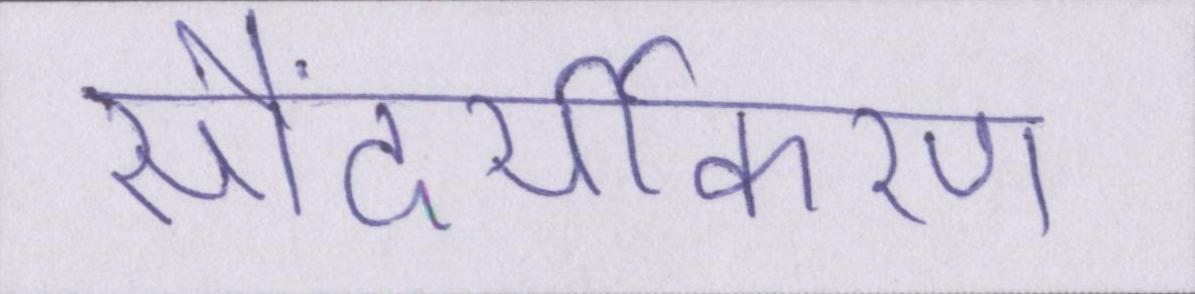 सौंदर्यीकरण